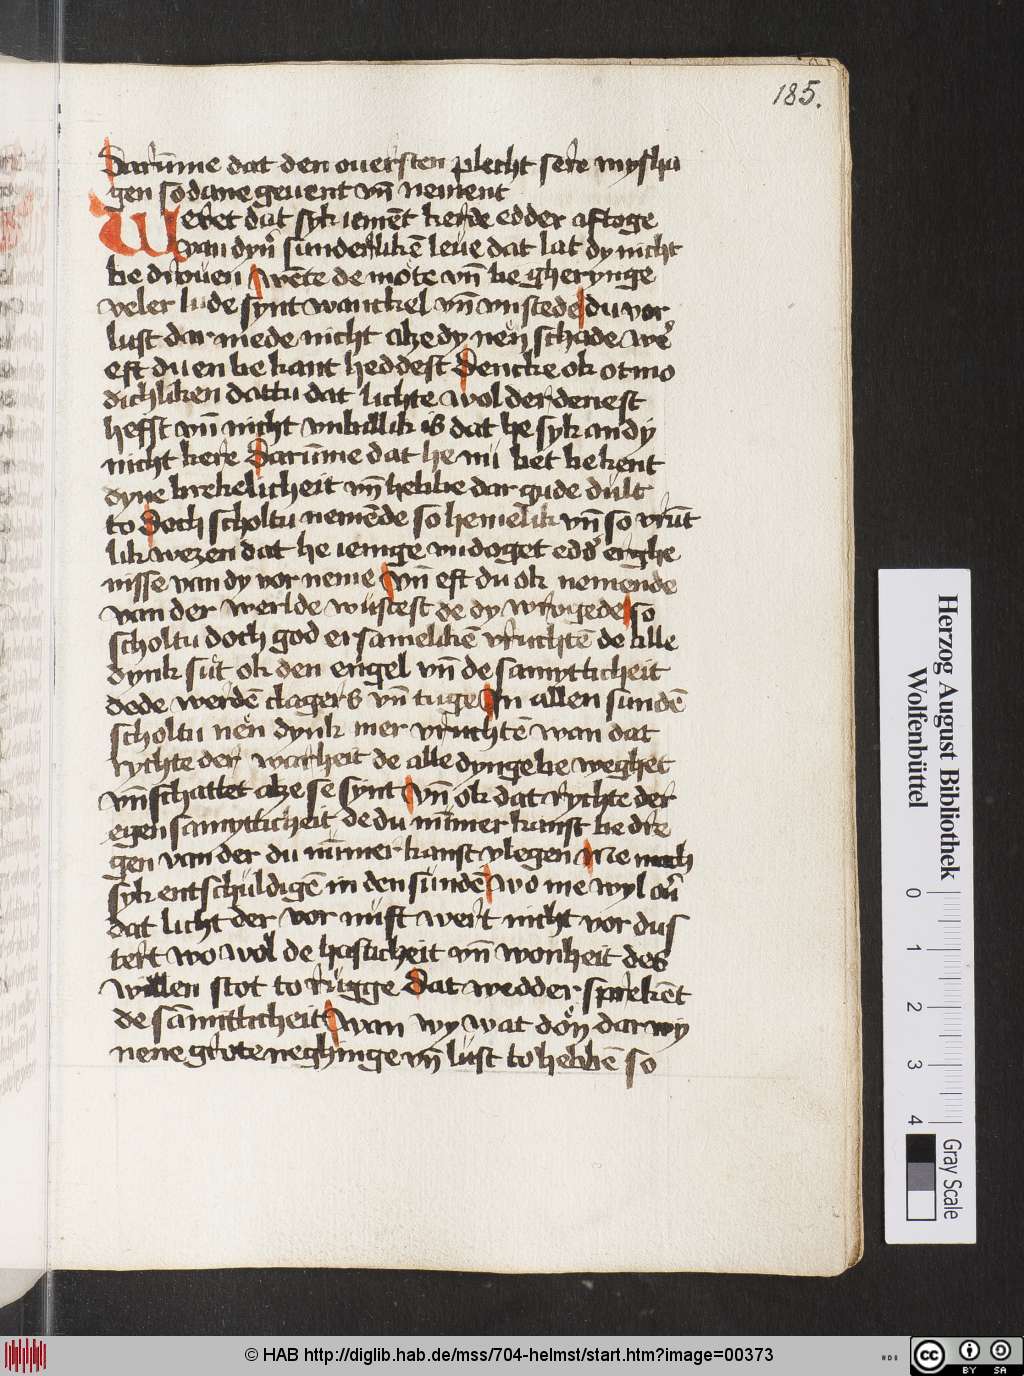 185.
Darūme dat den ouersten plecht sere mysha
gen sodane geuent vn̄ nement
Weret dat syk iemēt kerde edder aftoge
van dyn̄ sunderlikē leue dat lat dy nicht
be drouen wēte de mote vn̄ be gherynge
veler lude synt wanckel vn̄ vnstede du vor
lust dar mede nicht alze dy nen schade we
eft du en be kant heddest Dencke ok otmo
dichliken dattu dat lichte wol der denest
hefst vn̄ nicht vnbillik is dat he syk an dy
nicht kere Darūme dat he nu bet be kent
dyne brekelicheit vn̄ hebbe dar gude dult
to Doch scholtu nemēde so hemelik vn̄ so vrūt
lik wezen dat he ienige vndoget edd' erghe
nisse van dy vor neme vn̄ eft du ok nemēnde
van der werlde wustest de dy wrogede so
scholtu doch god ersamelikē vruchtē de alle
dynk sut ok den engel vn̄ de samytticheit
dede werdē clagers vn̄ tuge In allen sundē
scholtu nen dynk mer vruchtē wan dat
rychte der warheit de alle dynge be weghet
vn̄ schattet alze se synt vn̄ ok dat rychte der
egen samytticheit de du nūmer kanst be dre
gen van der du nūmer kanst vlegen Me mach
syk entschuldigē in den sundē wo me wyl ou'
dat licht der vor nuft wert nicht vor dus
tert wo wol de hasticheit vn̄ wonheit des
willen stot to rugge Dat wedder sprekēt
de sāmitticheit wan wy wat don dar wy
nene grote neghinge vn̄ lust to hebbē so
Herzog August Bibliothek
Wolfenbüttel
0 1 2 3 4
Gray Scale
© HAB http://diglib.hab.de/mss/704-helmst/start.htm?image=00373
HAB
cc BY SA